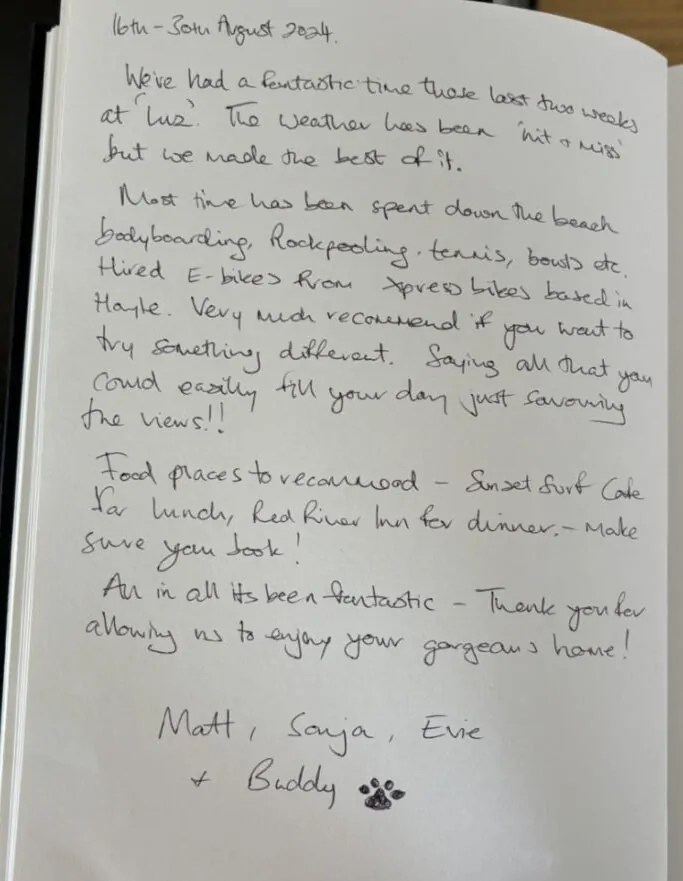 16th - 30th August 2024.
We've had a fantastic time these last two weeks
at 'Luz'. The weather has been 'hit + miss'
but we made the best of it.
Most time has been spent down the beach
bodyboarding, Rockpooling, tennis, bowls etc.
Hired E-bikes from Xpress bikes based in
Hayle. Very much recommend if you want to
try something different. Saying all that you
could easily fill your day just savouring
the views!!
Food places to recommend - Sunset Surf Cafe
for lunch, Red River Inn for dinner. - Make
sure you book!
All in all its been fantastic - Thank you for
allowing us to enjoy your gorgeous home!
Matt, Sonja, Evie
+ Buddy